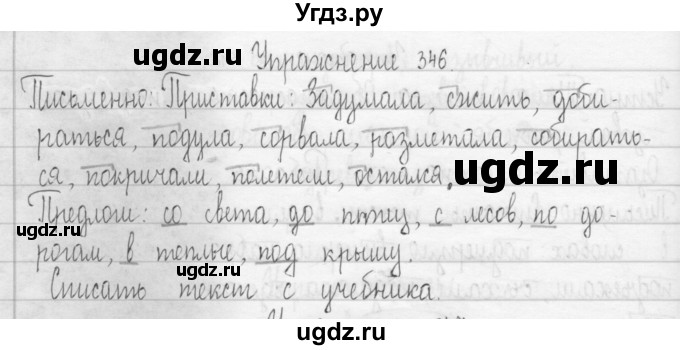 Угдз.ру
ugdz.ru
ugdz.ru
ugdz.ru
Упражнение 346.
Письменно: Приставки: Задумала, сжить, доби-
раться, подула, сорвала, разметала, собирать-
ся, покричали, полетели, остался.
ugdz.ru
ugdz.ru
Предлоги: со света, до птиц, с лесов, по до-
рогам, в теплые, под крышу.
ugdz.ru
ugdz.ru
Списать текст с учебника.
ugdz.ru